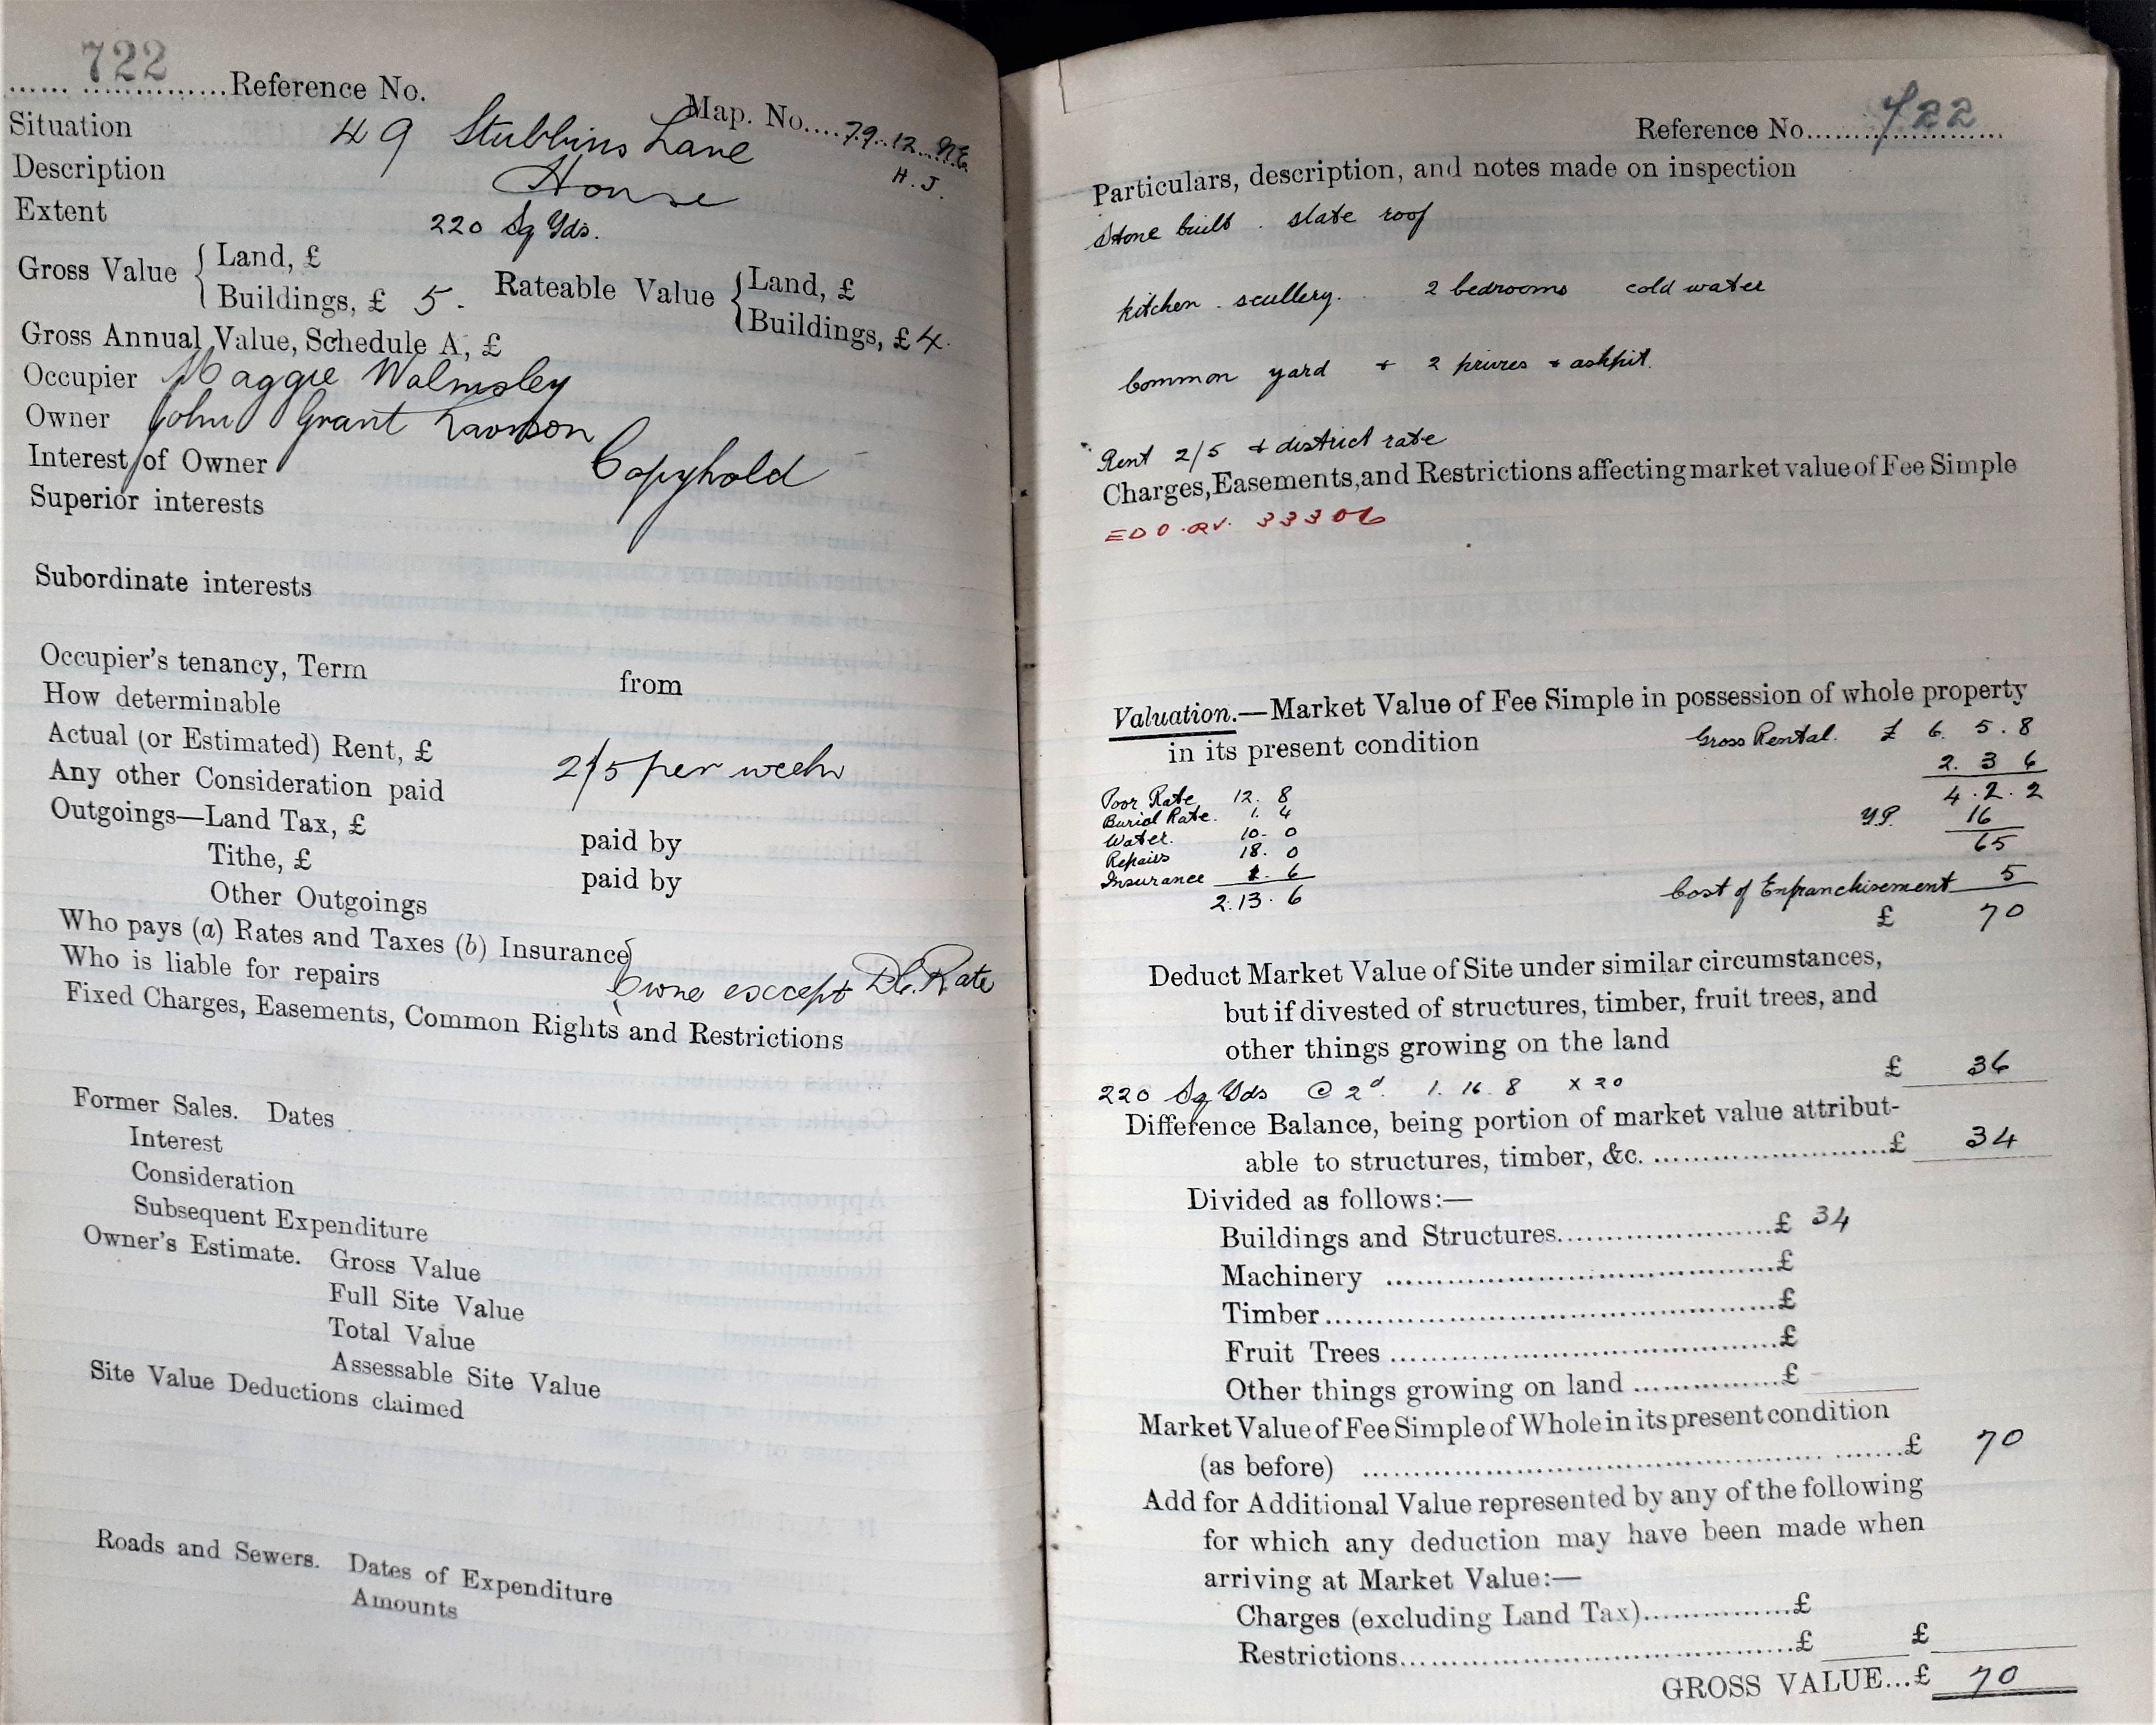 722
Reference No.
Map. No. 79.12. N.E.
H. J.
Situation 49 Stubbins Lane
Description House
Extent 220 Sq Yds.
Gross Value { Land, £
Buildings, £ 5.
Rateable Value { Land, £
Buildings, £ 4.
Gross Annual Value, Schedule A, £
Occupier Maggie Walmsley
Owner John Grant Lawson
Interest of Owner Copyhold
Superior interests
Subordinate interests
Occupier's tenancy, Term from
How determinable
Actual (or Estimated) Rent, £ 2/5 per week
Any other Consideration paid
Outgoings—Land Tax, £ paid by
Tithe, £ paid by
Other Outgoings
Who pays (a) Rates and Taxes (b) Insurance
Who is liable for repairs except Rate
Fixed Charges, Easements, Common Rights and Restrictions
Former Sales. Dates
Interest
Consideration
Subsequent Expenditure
Owner's Estimate. Gross Value
Full Site Value
Total Value
Assessable Site Value
Site Value Deductions claimed
Roads and Sewers. Dates of Expenditure
Amounts
Reference No. 722
Particulars, description, and notes made on inspection
Stone built . slate roof
kitchen . scullery. 2 bedrooms cold water
Common yard + 2 privies + ashpit.
Rent 2/5 + district rate
Charges, Easements, and Restrictions affecting market value of Fee Simple
33306
Valuation.—Market Value of Fee Simple in possession of whole property
in its present condition Gross Rental. £ 6. 5. 8
2. 3 6
Poor Rate 12. 8 4. 2. 2
Burial Rate. 1. 4 YP. 16
Water. 10. 0 65
Repairs 18. 0
Insurance 1. 6 Cost of Enfranchisement 5
2. 13. 6 £ 70
Deduct Market Value of Site under similar circumstances,
but if divested of structures, timber, fruit trees, and
other things growing on the land
£ 36
220 Sq Yds @ 2d. 1. 16. 8 x 20
Difference Balance, being portion of market value attribut-
able to structures, timber, &c. £ 34
Divided as follows:—
Buildings and Structures £ 34
Machinery £
Timber £
Fruit Trees £
Other things growing on land £
Market Value of Fee Simple of Whole in its present condition
(as before) £ 70
Add for Additional Value represented by any of the following
for which any deduction may have been made when
arriving at Market Value:—
Charges (excluding Land Tax) £
Restrictions £ £
GROSS VALUE...£ 70